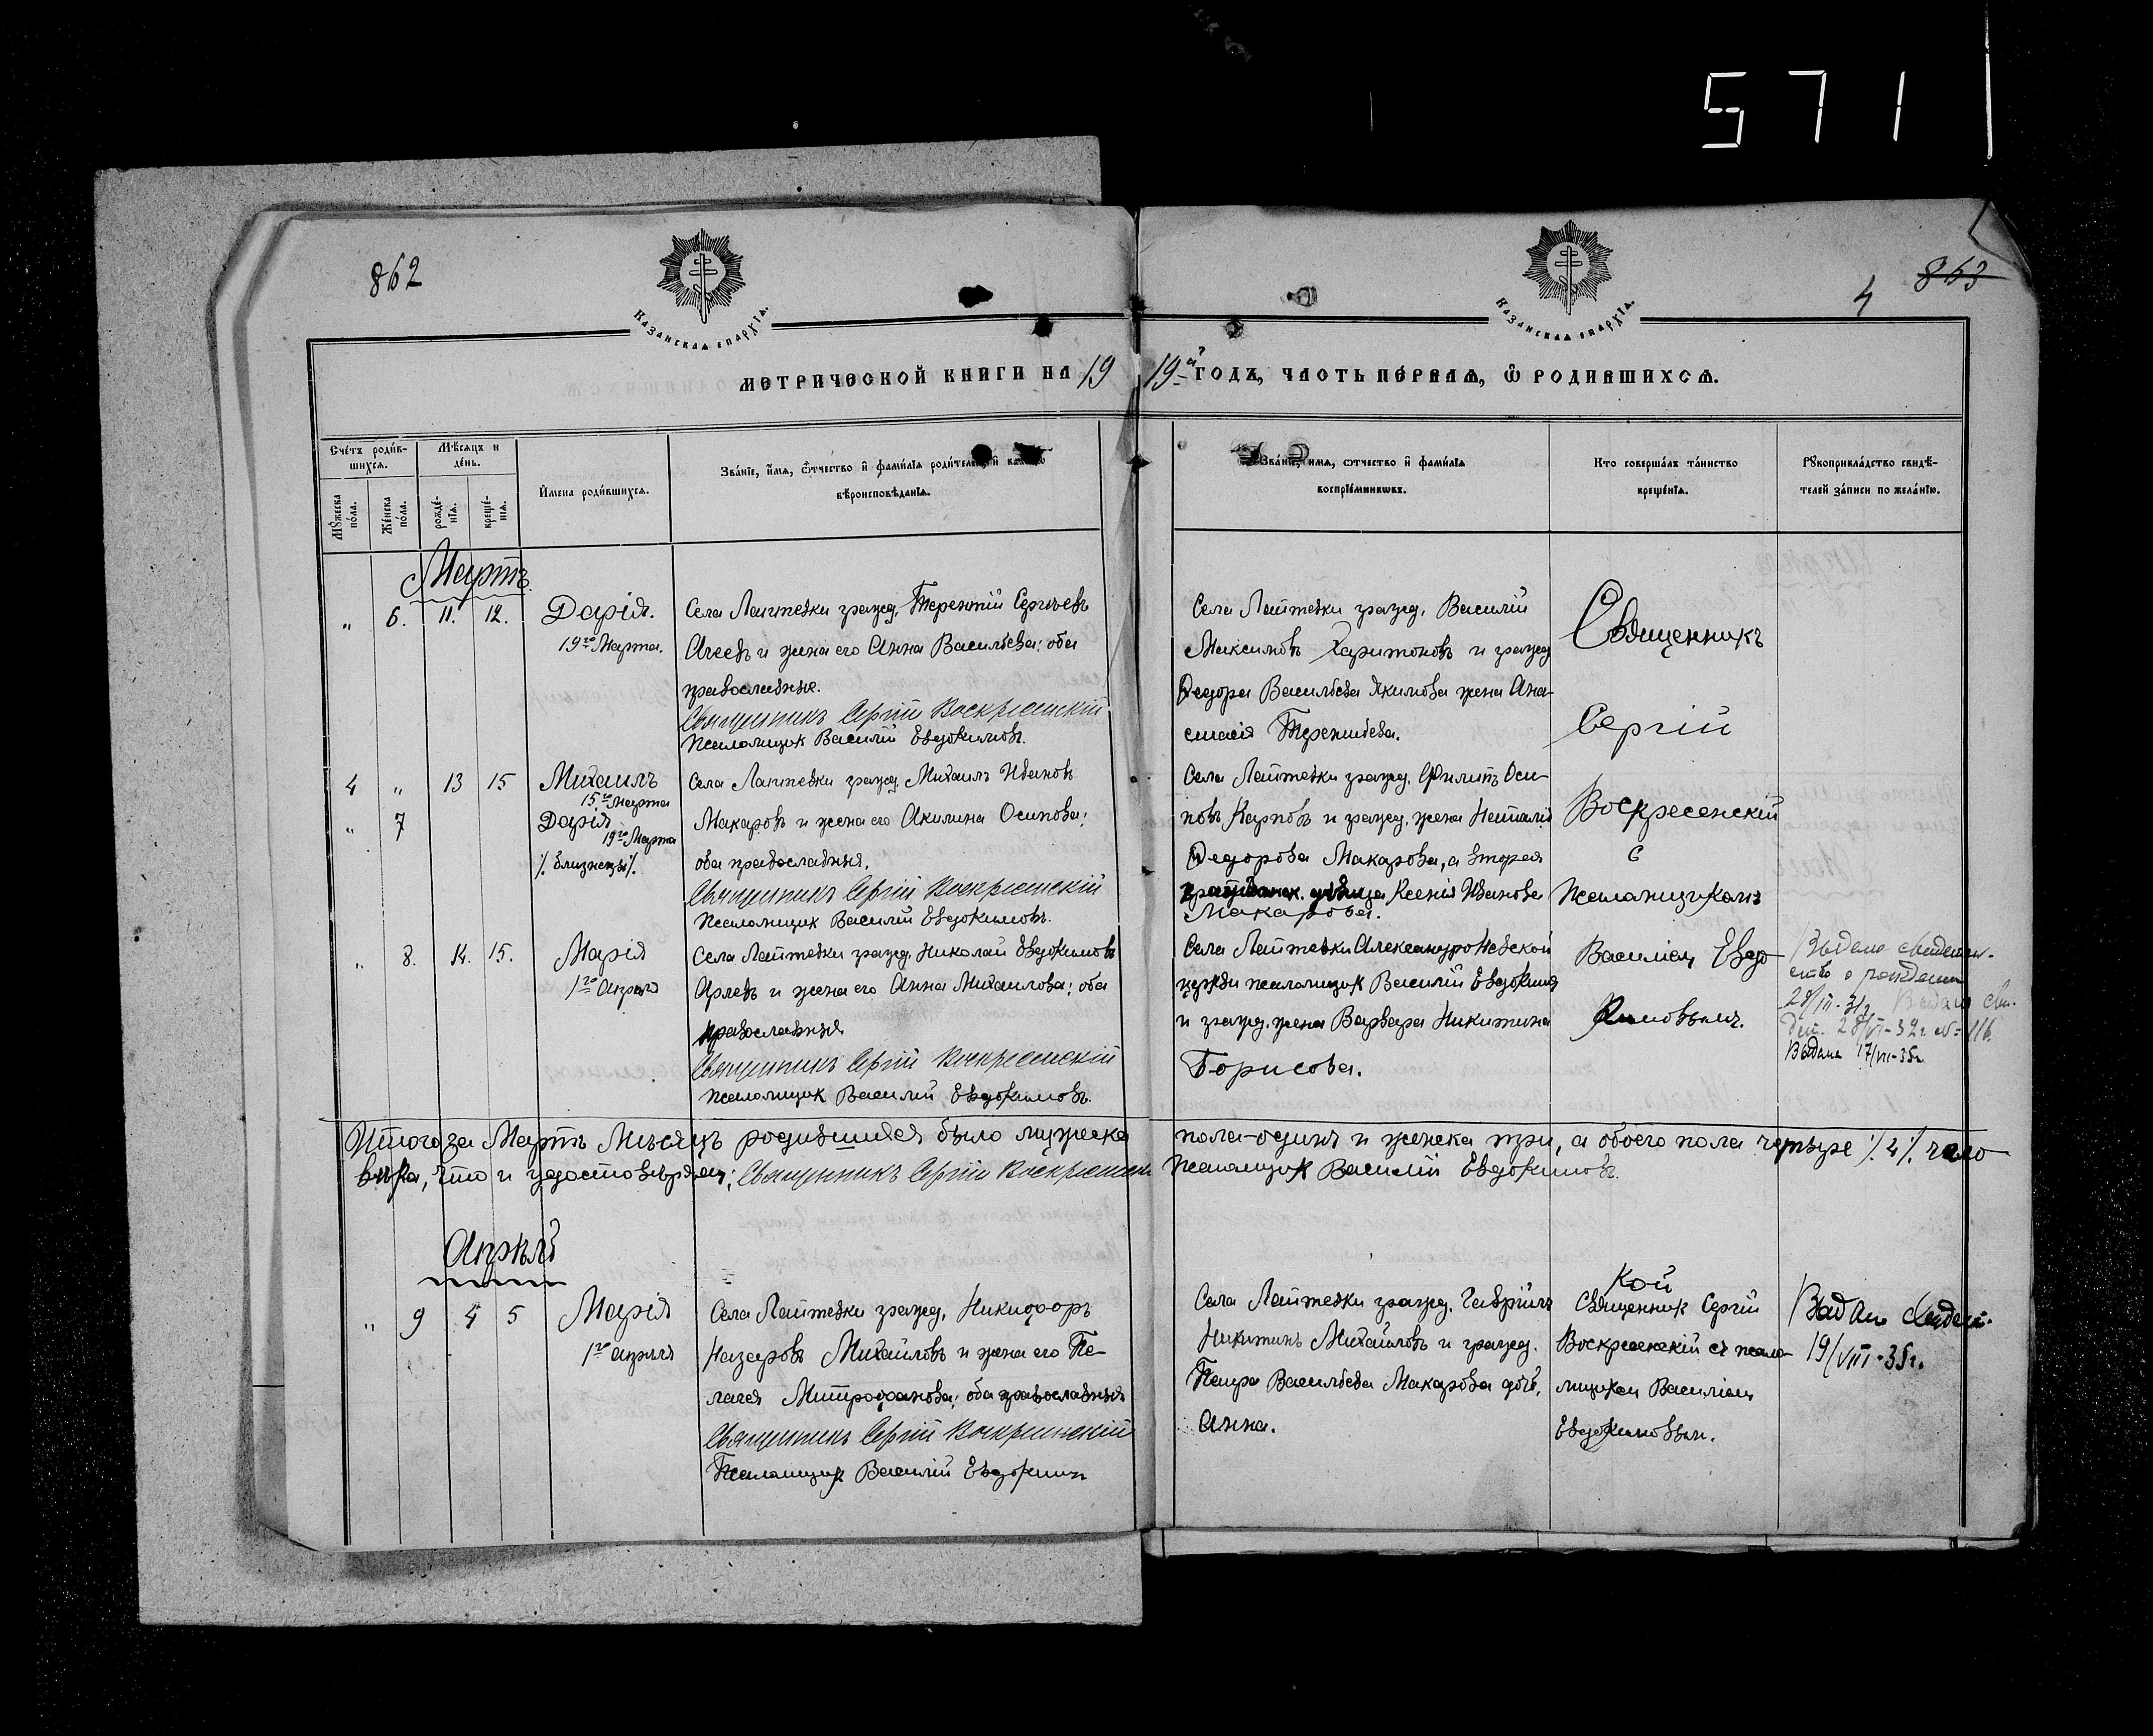 5 7 1
862
КАЗАНСКАЯ ЕПАРХІЯ.
КАЗАНСКАЯ ЕПАРХІЯ.
4 863
МЕТРИЧЕСКОЙ КНИГИ НА 19 19й ГОДЪ, ЧАСТЬ ПЕРВАЯ, Ѡ РОДИВШИХСЯ.
Счетъ родив-
шихся.
Мѣсяцъ и
день.
Мужеска
пола.
Женска
пола.
рожде-
нія.
креще-
нія.
Имена родившихся.
Званіе, имя, ѿчество и фамилія родителей и
вѣроисповѣданія.
Званіе, имя, ѿчество и фамилія
воспріемниковъ.
Кто совершалъ таинство
крещенія.
Рукоприкладство свидѣ-
телей записи по желанію.
Мартъ
„ 6. 11. 12. Дарія.
19го Марта.
Села Лаптевки гражд. Терентій Сергѣевъ
Агеевъ и жена его Анна Васильева: оба
православные.
Священникъ Сергій Воскресенскій
Псаломщик Василій Евдокимовъ.
Села Лаптевки гражд. Василій
Максимовъ Харитоновъ и гражд
Ѳедора Васильева Якимова жена Ана-
стасія Терентьева.
Священникъ
Сергій
Воскресенскій
с
псаломщикомъ
Василіем Евдо-
кимовымъ.
4 „ 13 15 Михаилъ
15го Марта
„ 7 Дарія
19го Марта
/. близнецы /.
Села Лаптевки гражд. Михаилъ Ивановъ
Макаровъ и жена его Акилина Осипова;
оба православныя.
Священникъ Сергій Воскресенскій
Псаломщик Василій Евдокимовъ.
Села Лаптевки гражд. Филипъ Оси-
повъ Карповъ и гражд. жена Наталія
Ѳедорова Макарова, а вторая
девица Ксенія Иванова
Макарова.
„ 8. 14. 15. Марія
1го Апреля
Села Лаптевки гражд. Николай Евдокимовъ
и жена его Анна Михаилова; оба
православныя
Священникъ Сергій Воскресенскій
Псаломщик Василій Евдокимовъ.
Села Лаптевки Александро Невской
церкви псаломщик Василій Евдокимов
и гражд. жена Варвара Никитина
Борисова.
Выдано свидетель-
ство о рождении
Выдано сви-
Выдано 17/VII-35г.
Итого за Мартъ Мѣсяцъ родившихся было мужска пола-один и женска три, а обоего пола четыре /.4/. чело
вѣка, что и удостовѣряем; Священникъ Сергій Воскресенскій Псаломщик Василій Евдокимовъ.
Апрѣлй
„ 9 4 5 Марія
1го апреля
Села Лаптевки гражд. Никифоръ
Назаровъ Михайловъ и жена его Пе-
лагея Митрофанова; оба православныя
Священникъ Сергій Воскресенскій
Псаломщик Василій Евдокимовъ
Села Лаптевки гражд. Гавріилъ
Никитинъ Михайловъ и гражд.
Петра Васильева Макарова дочь,
Анна.
кой
Священник Сергій
Воскресенскій съ псало-
мщиком Василіем
Евдокимовым.
Выдано свидет.
19/VIII-35г.